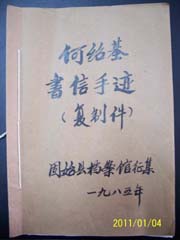 何绍基
書信手迹
(复制件)
固始县档案馆征集
一九八五年
2011/01/04